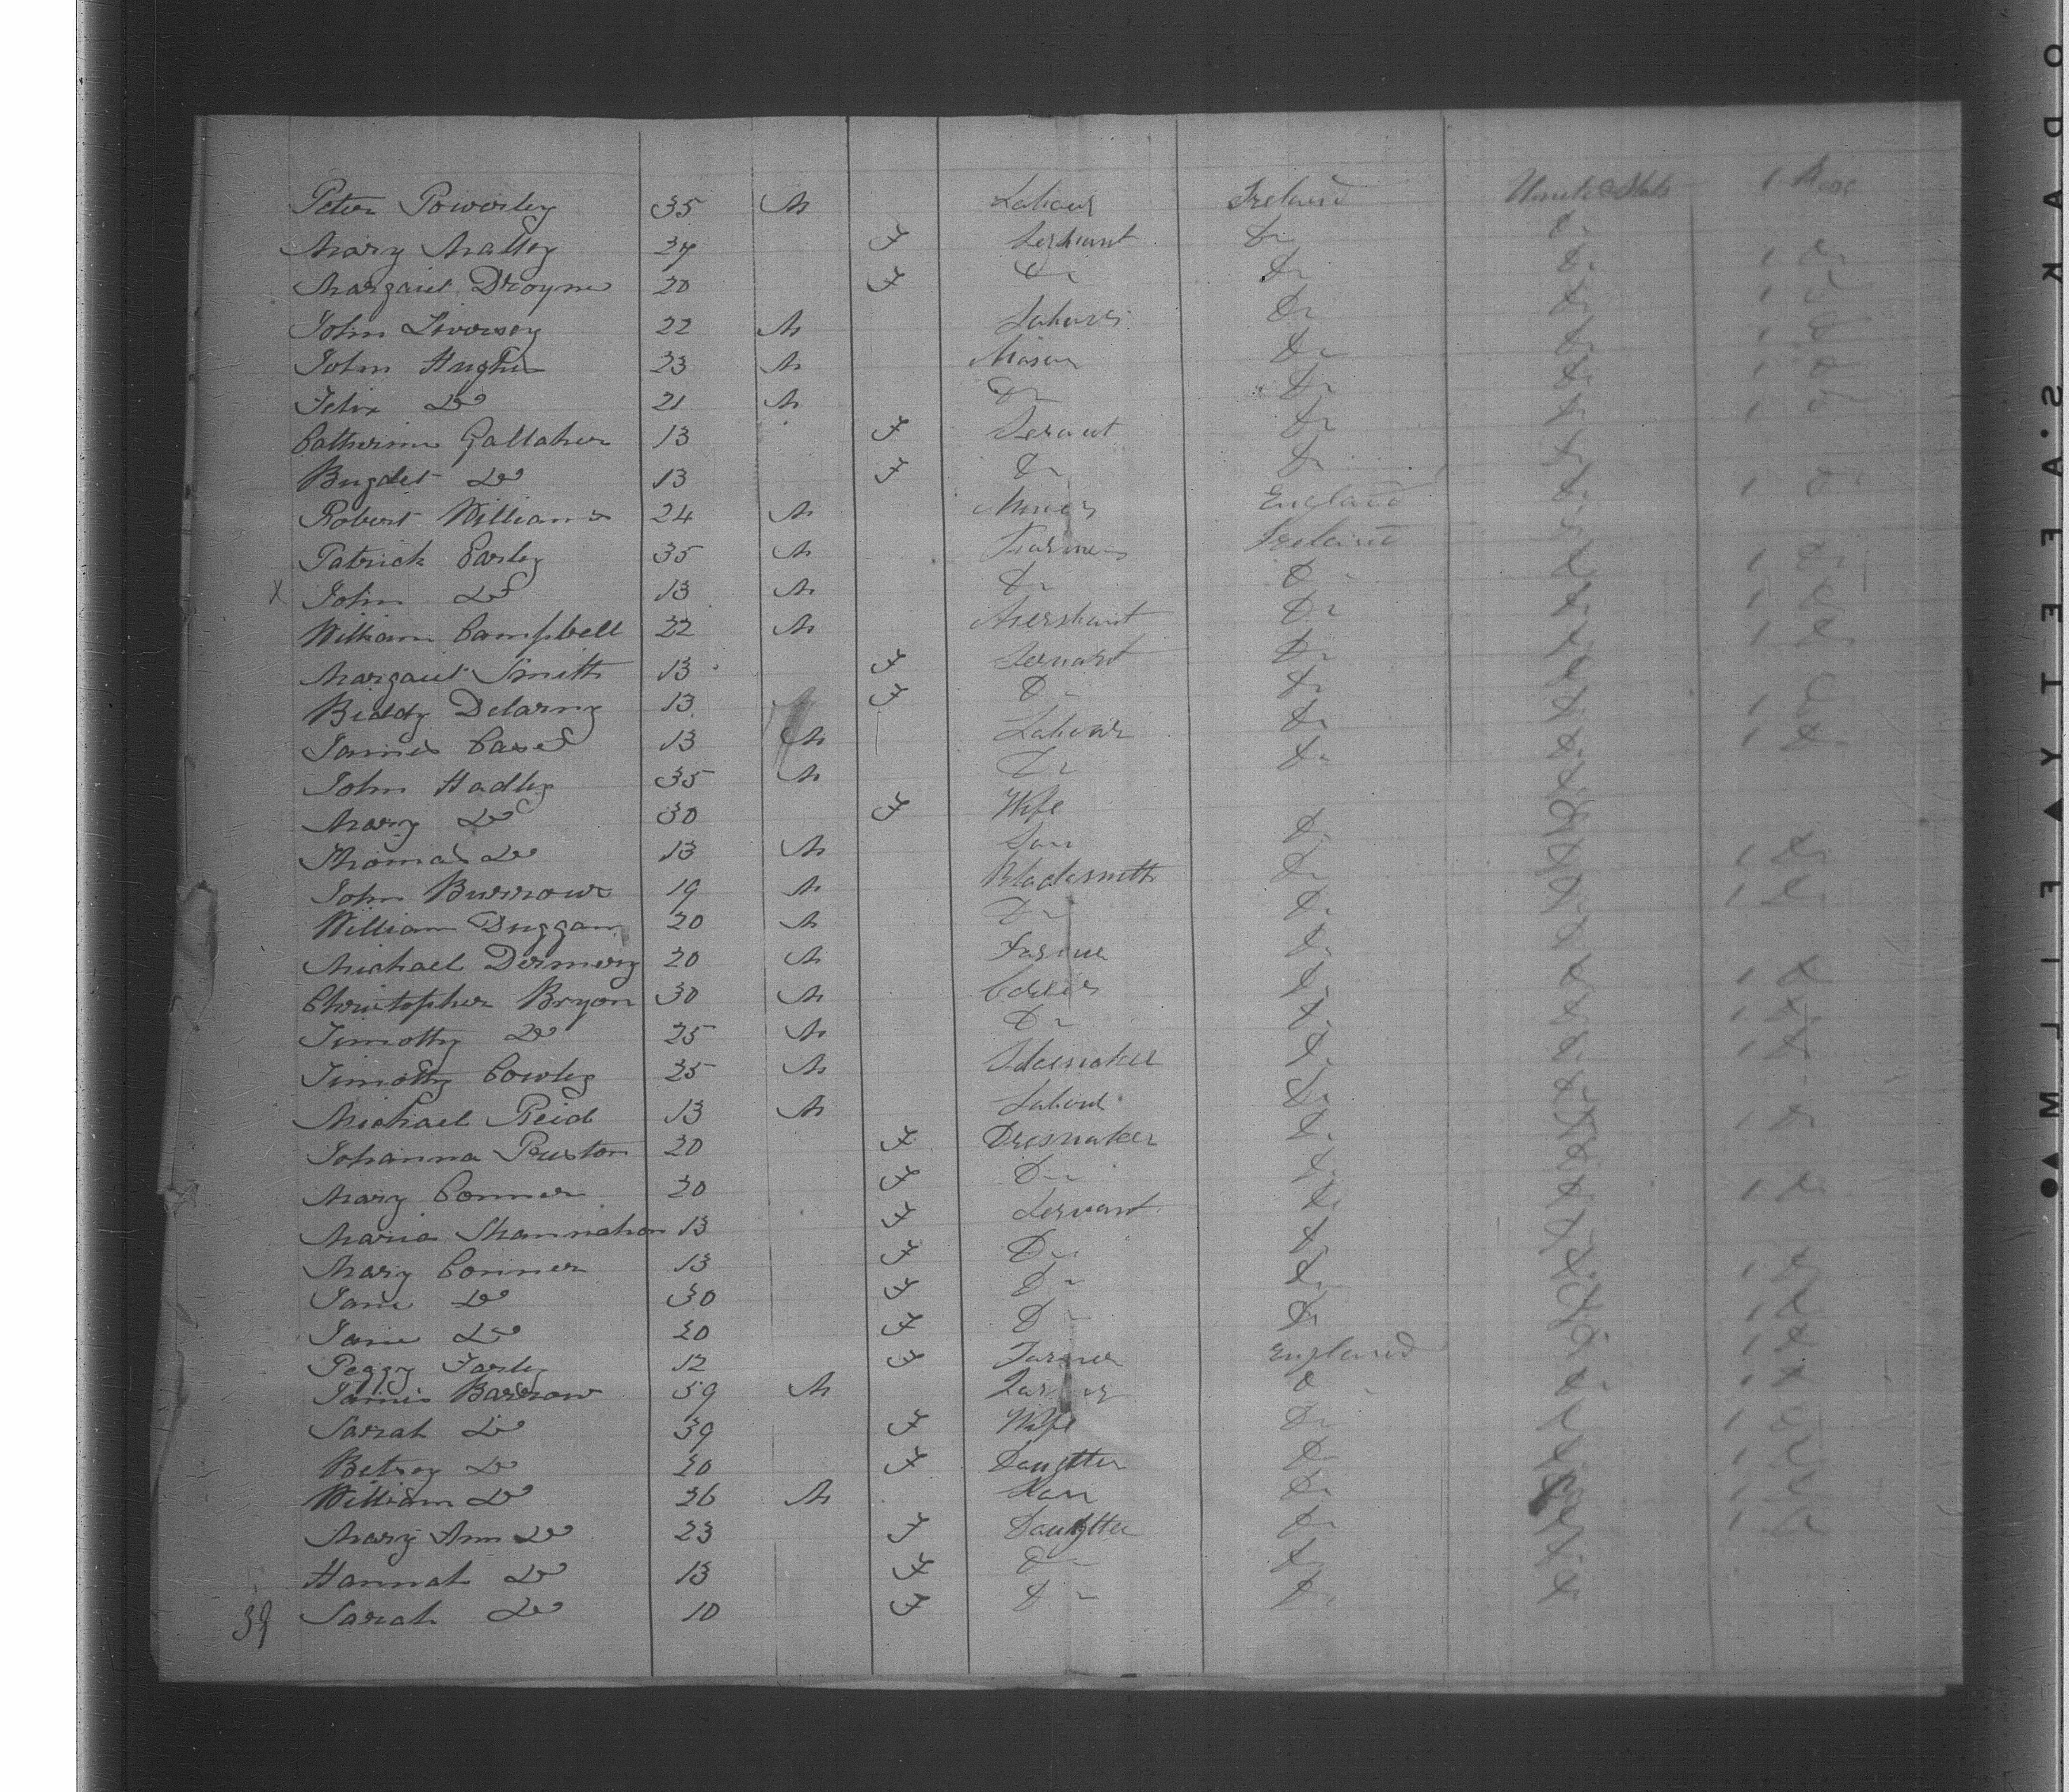 Peter Powerley 35 M Labour Ireland United Stats 1
Mary Malloy 24 F Servant Do Do
Margaret 20 F Do Do Do 1 Do
John 22 M Labour Do Do 1 Do
John Hughes 23 M Mason Do Do 1 Do
Felix Do 21 M Do Do Do 1 Do
Catherine Gallaher 13 F Servant Do Do 1 Do
Bugdet Do 13 F Do Do Do
Robert Williams 24 M Miner England Do 1 Do
Patrick Earley 35 M Farmer Ireland Do
X John Do 13 M Do Do Do 1 Do
William Campbell 22 M Mershant Do Do 1 Do
Margaret Smith 13 F Servant Do Do 1 Do
Biddy Delarny 13 F Do Do Do
James 13 M Labour Do Do 1 Do
John Hadley 35 M Do Do Do 1 Do
Mary Do 30 F Wife Do
Thomas Do 13 M Son Do Do
John Burrows 19 M Blacksmith Do Do 1 Do
William Duggan 20 M Do Do Do 1 Do
Michael 20 M Farmer Do Do
Christopher Bryon 30 M Do Do 1 Do
Timothy Do 25 M Do Do Do 1 Do
Timothy Cowley 25 M Shoemaker Do Do 1 Do
Michael Reid 13 M Labour Do Do
Johanna 20 F Dresmaker Do Do 1 Do
Mary Conner 20 F Do Do Do
Maria Shannahon 13 F Servant Do Do 1 Do
Mary Conner 13 F Do Do Do
Jane Do 30 F Do Do Do 1 Do
Jane Do 20 F Do Do Do 1 Do
Peggy Farley 12 F Farmer England Do 1 Do
James Barrow 59 M Farmer Do Do 1 Do
Sarah Do 39 F Wife Do Do 1 Do
Betsey Do 20 F Daughter Do Do 1 Do
William Do 26 M Do 1 Do
Mary Ann Do 23 F Daughter Do Do 1 Do
Hannah Do 13 F Do Do Do
39 Sarah Do 10 F Do Do Do